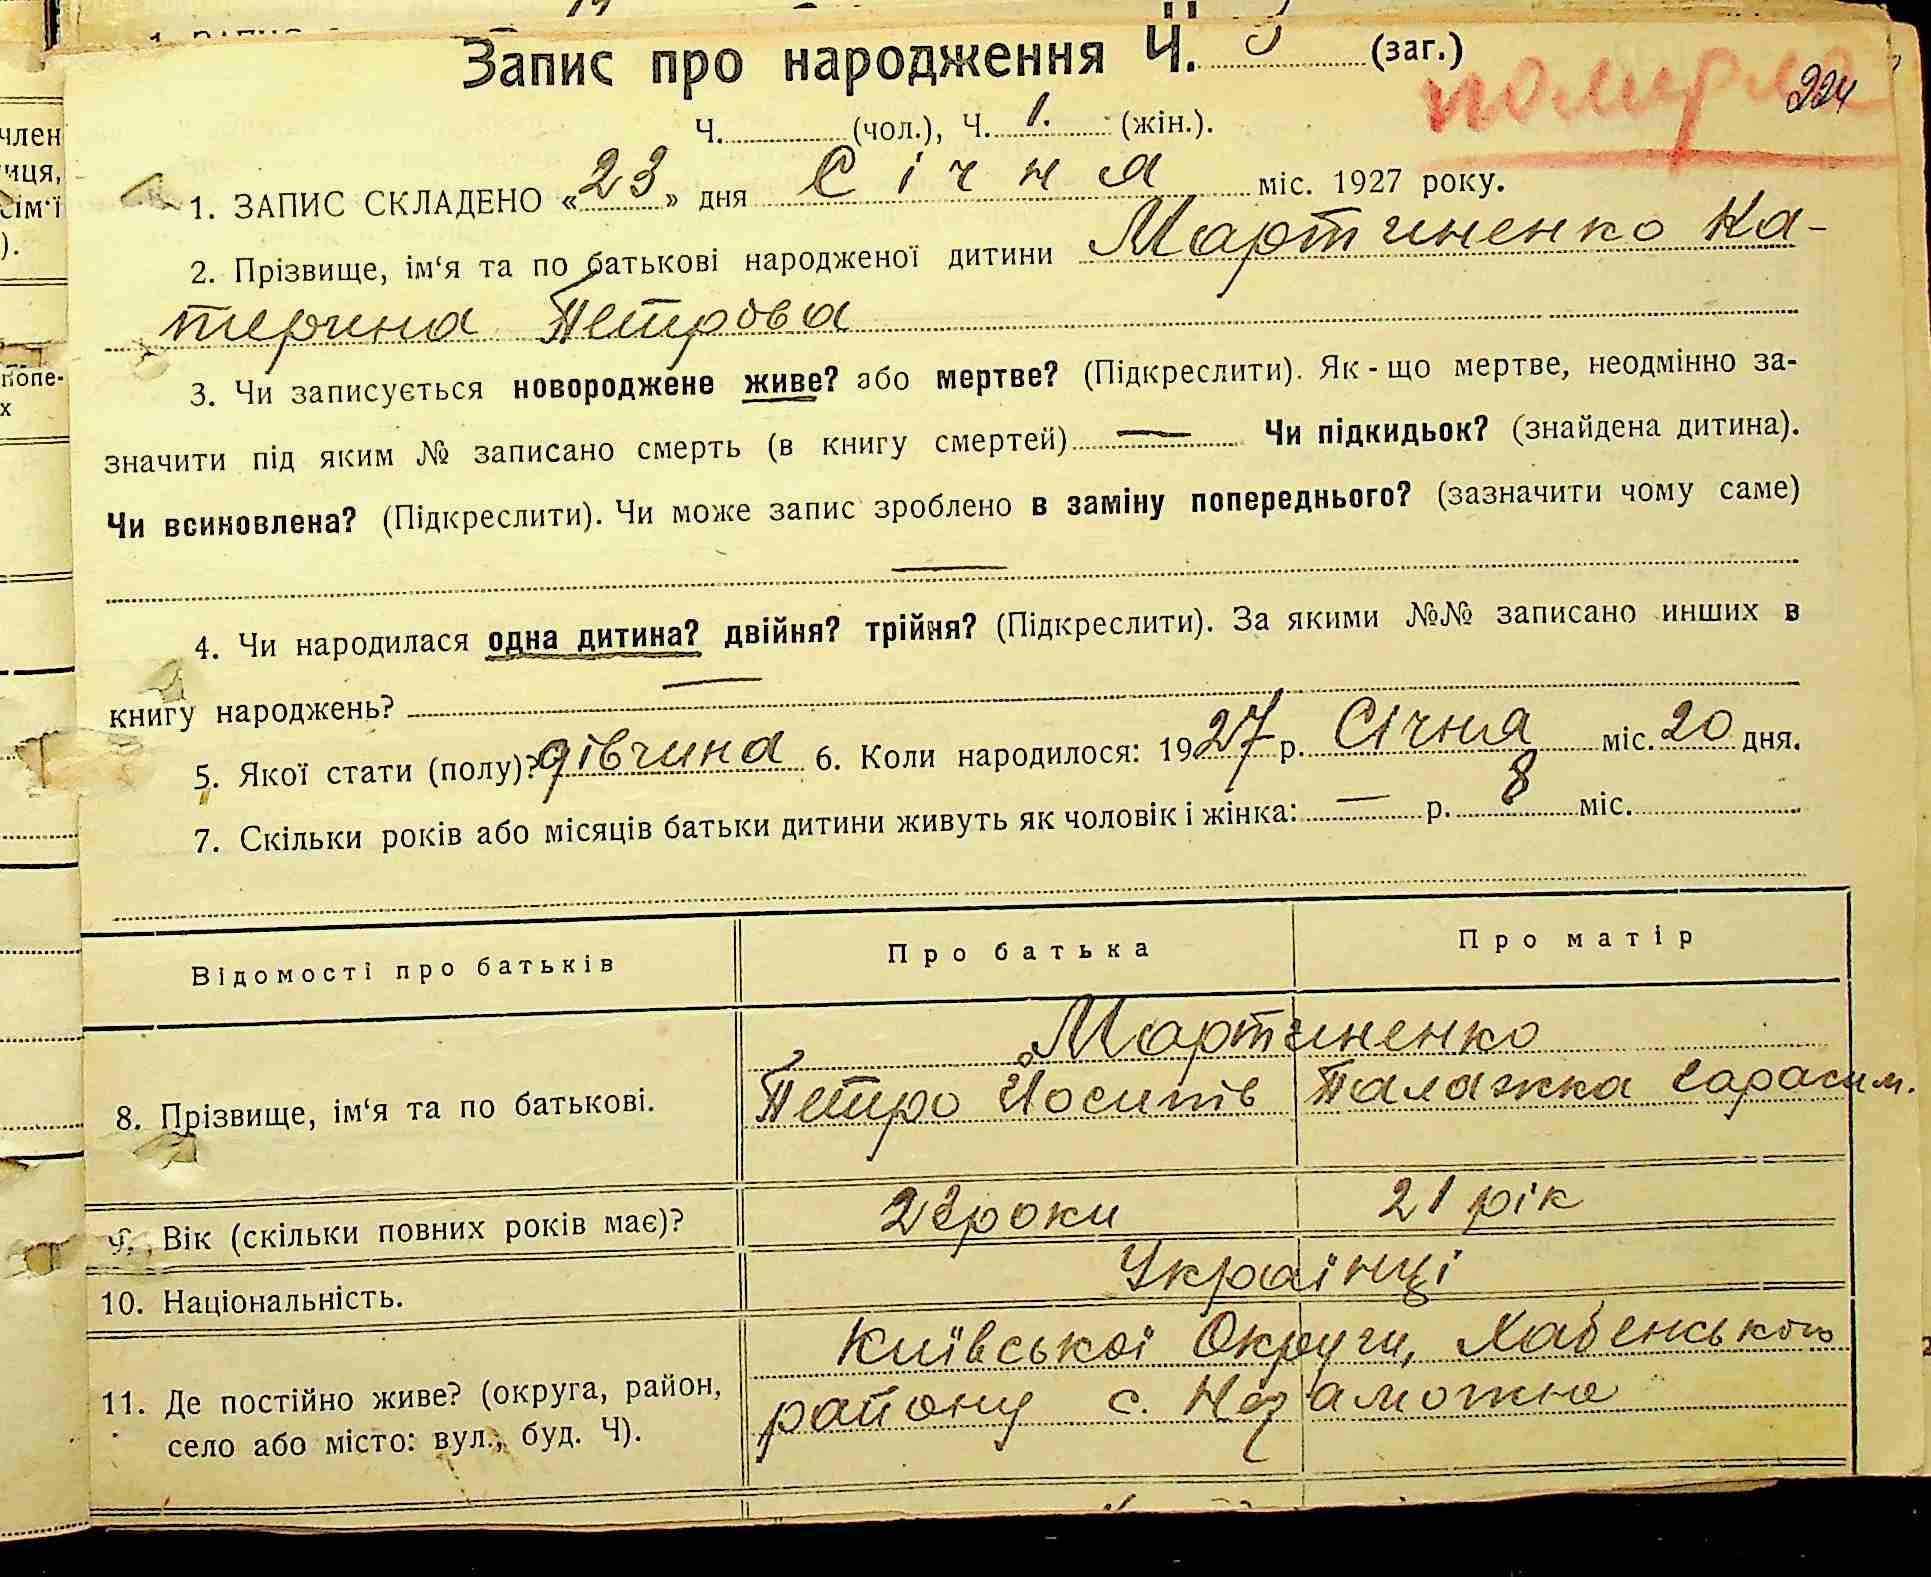 Запис про народження Ч. (заг.)
померла 224
Ч. (чол.), Ч. 1. (жін.).
1. ЗАПИС СКЛАДЕНО «23» дня Січня міс. 1927 року.
2. Прізвище, ім‘я та по батькові народженої дитини Мартиненко Ка-
терина Петрова
3. Чи записується новороджене живе? або мертве? (Підкреслити). Як-що мертве, неодмінно за-
значити під яким № записано смерть (в книгу смертей) — Чи підкидьок? (знайдена дитина).
Чи всиновлена? (Підкреслити). Чи може запис зроблено в заміну попереднього? (зазначити чому саме)
—
4. Чи народилася одна дитина? двійня? трійня? (Підкреслити). За якими №№ записано инших в
книгу народжень? —
5. Якої стати (полу)? дівчина 6. Коли народилося: 1927 р. Січня міс. 20 дня.
7. Скільки років або місяців батьки дитини живуть як чоловік і жінка: — р. 8 міс.
Відомості про батьків Про батька Про матір
Мартиненко
8. Прізвище, ім‘я та по батькові. Петро Йосипів Палажка Гарасим.
9. Вік (скільки повних років має)? 23 роки 21 рік
10. Національність. Українці
Київської Округи, Хабенського
11. Де постійно живе? (округа, район, району с. Незаможне
село або місто: вул., буд. Ч).
член
иця,
сім‘ї
).
попе-
х